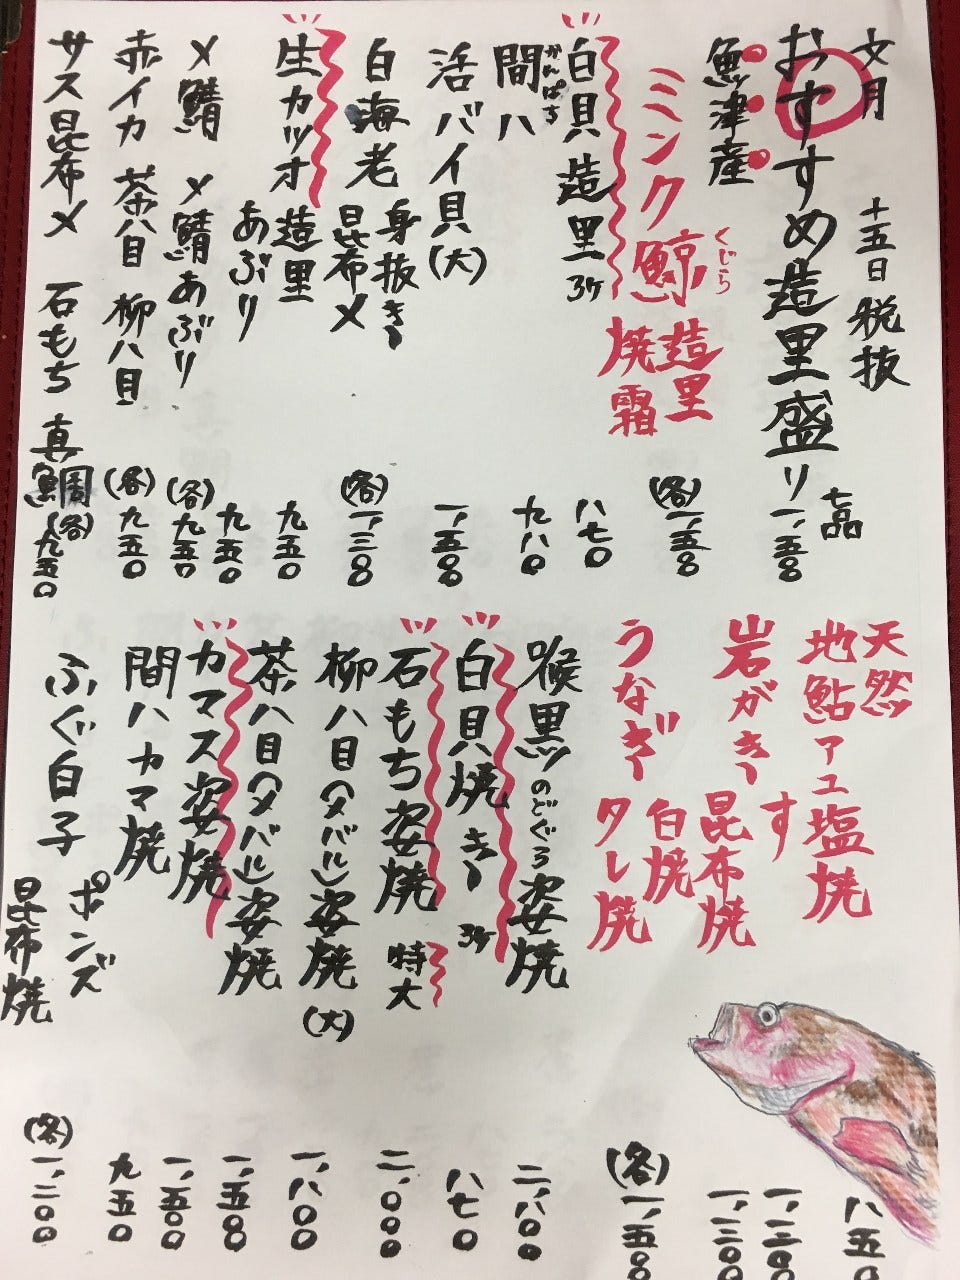 文月 十五日 税抜
おすすめ造里盛り 七品 一、五〇〇
魚津産
ミンク鯨 くじら 造里 焼霜 (各)一、五〇〇
白貝 造里 3ケ 八七〇
間八 かんぱち 九八〇
活バイ貝(大) 一、五〇〇
白海老 身抜き 昆布〆 (各)一、三〇〇
生カツオ 造里 九五〇
あぶり 九五〇
〆鯖 〆鯖あぶり (各)九五〇
赤イカ 茶八目 柳八目 (各)九五〇
サス昆布〆 石もち 真鯛 (各)九五〇
天然
地鮎アユ塩焼 八五〇
岩がき す 一、二〇〇
昆布焼 一、二〇〇
うなぎ 白焼 タレ焼 (各)一、五〇〇
喉黒 のどぐろ 姿焼 二、八〇〇
白貝焼き 3ケ 八七〇
石もち姿焼 特大 二、〇〇〇
柳八目(メバル)姿焼(大) 一、八〇〇
茶八目(メバル)姿焼 一、五〇〇
カマス姿焼 一、五〇〇
間八カマ焼 九五〇
ふぐ白子 ポンズ 昆布焼 (各)一、二〇〇